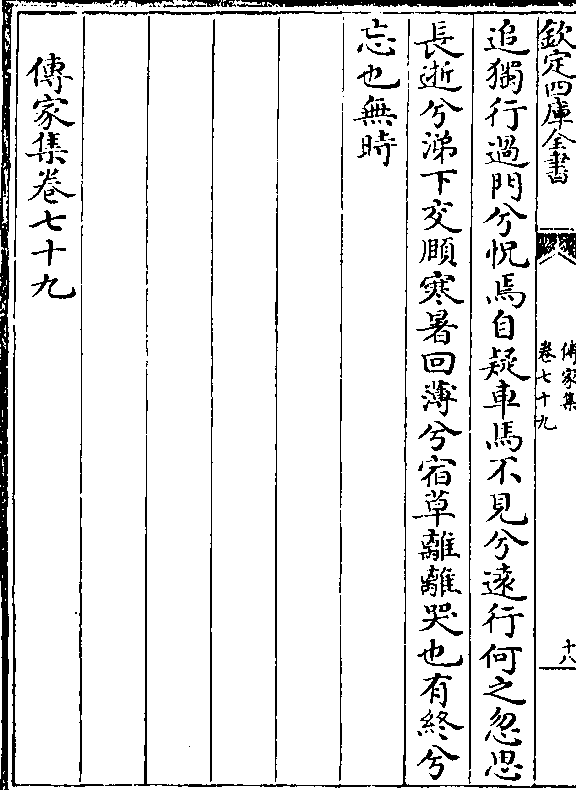 欽定四庫全書
傳家集
卷七十九
十八
追獨行過門兮怳焉自疑車馬不見兮遠行何之忽思
長逝兮涕下交頤寒暑回薄兮宿草離離哭也有終兮
忘也無時
傳家集卷七十九